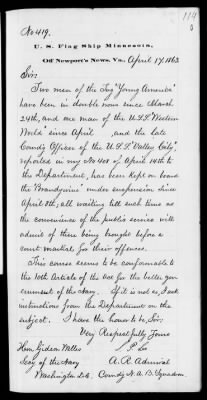 114
No 419.
U. S. Flag Ship Minnesota,
Off Newport's News, Va., April 17, 1863
Sir:
Two men of the Tug "Young America"
have been in double irons since March
24th, and one man of the U.S.S. "Western
World" since April , and the late
Comdg Officer of the U.S.S. "Valley City",
reported in my No 408 of April 14th to
the Department, has been kept on board
the "Brandywine" under suspension since
April 8th, all waiting till such time as
the convenience of the public service will
admit of there being brought before a
court martial, for their offences.
This course seems to be conformable to
the 10th Article of the Act for the better gov-
ernment of the Navy. If it is not so, I ask
instructions from the Department on the
subject. I have the honor to be, Sir,
Very Respectfully Yours
Hon. Gideon Welles S P Lee
Secy of the Navy A. R. Admiral
Washington D.C. Comdg N. A. B. Squadron.